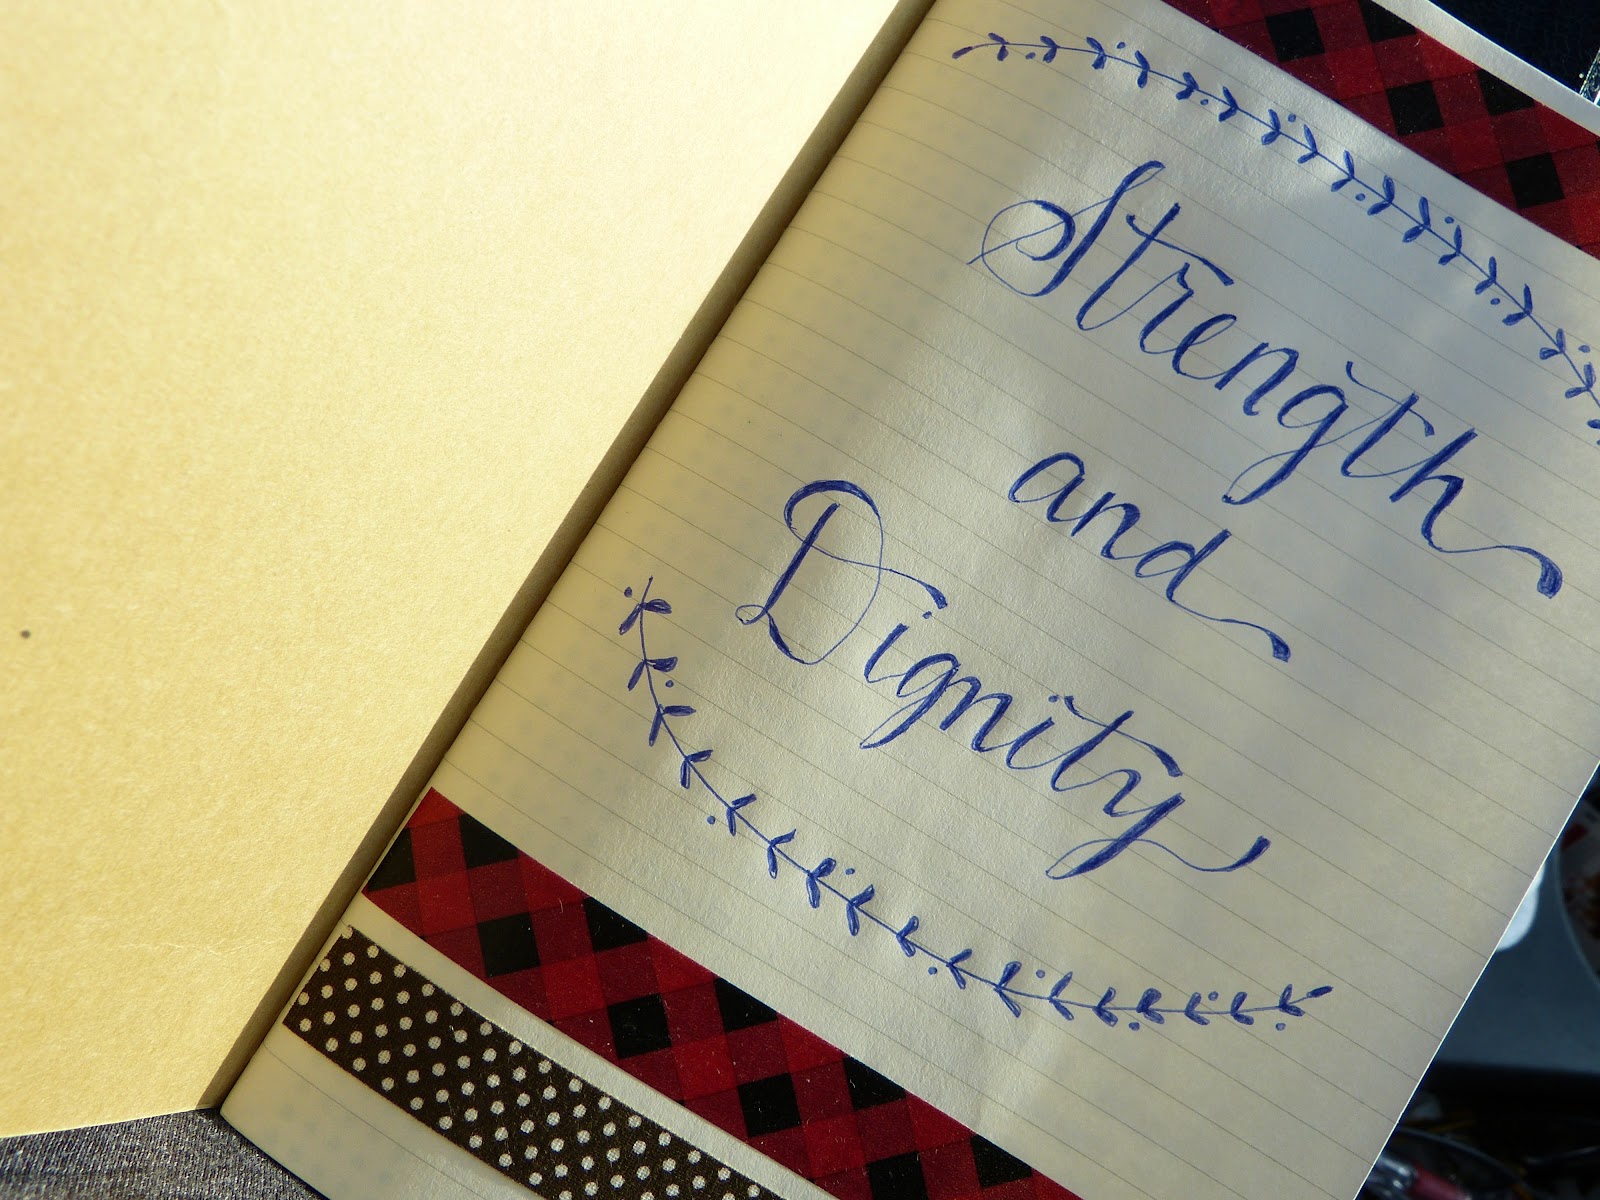 Strength
and
Dignity